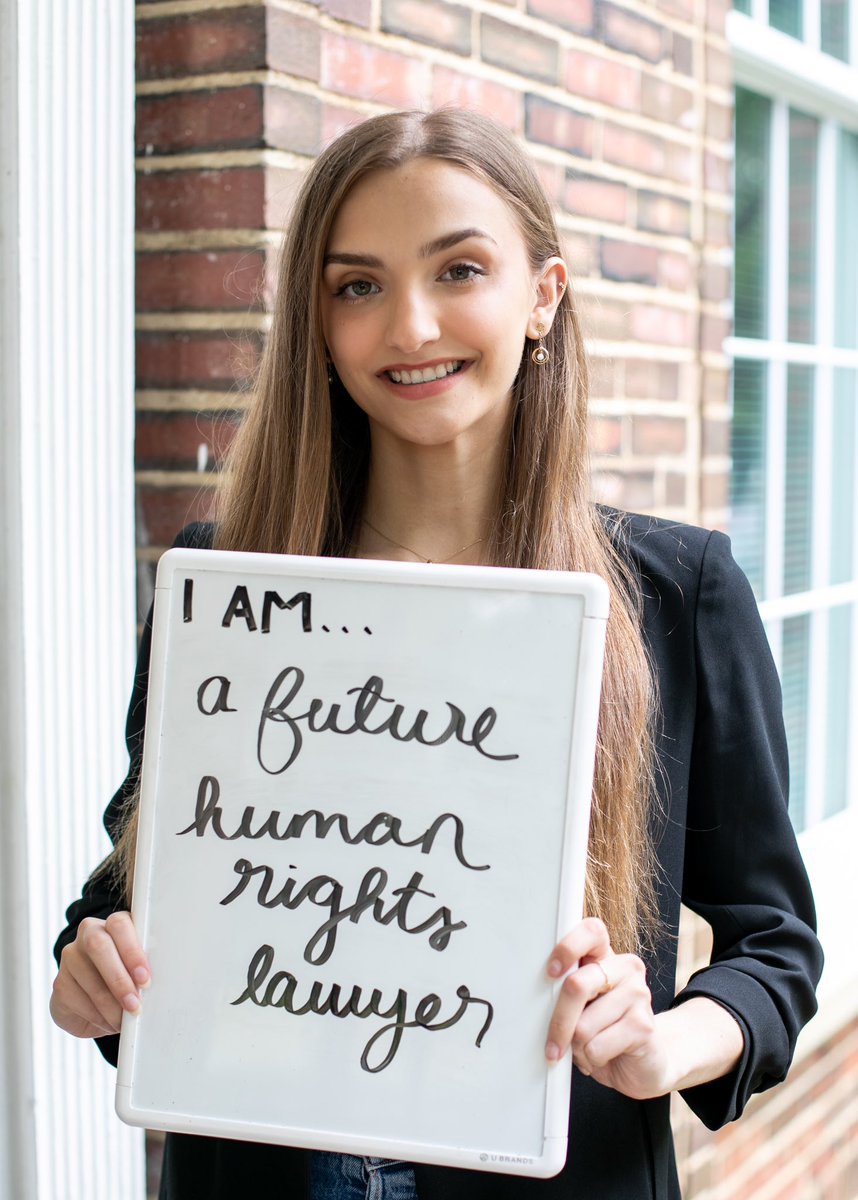 I AM...
a future
human
rights
lawyer
U BRANDS